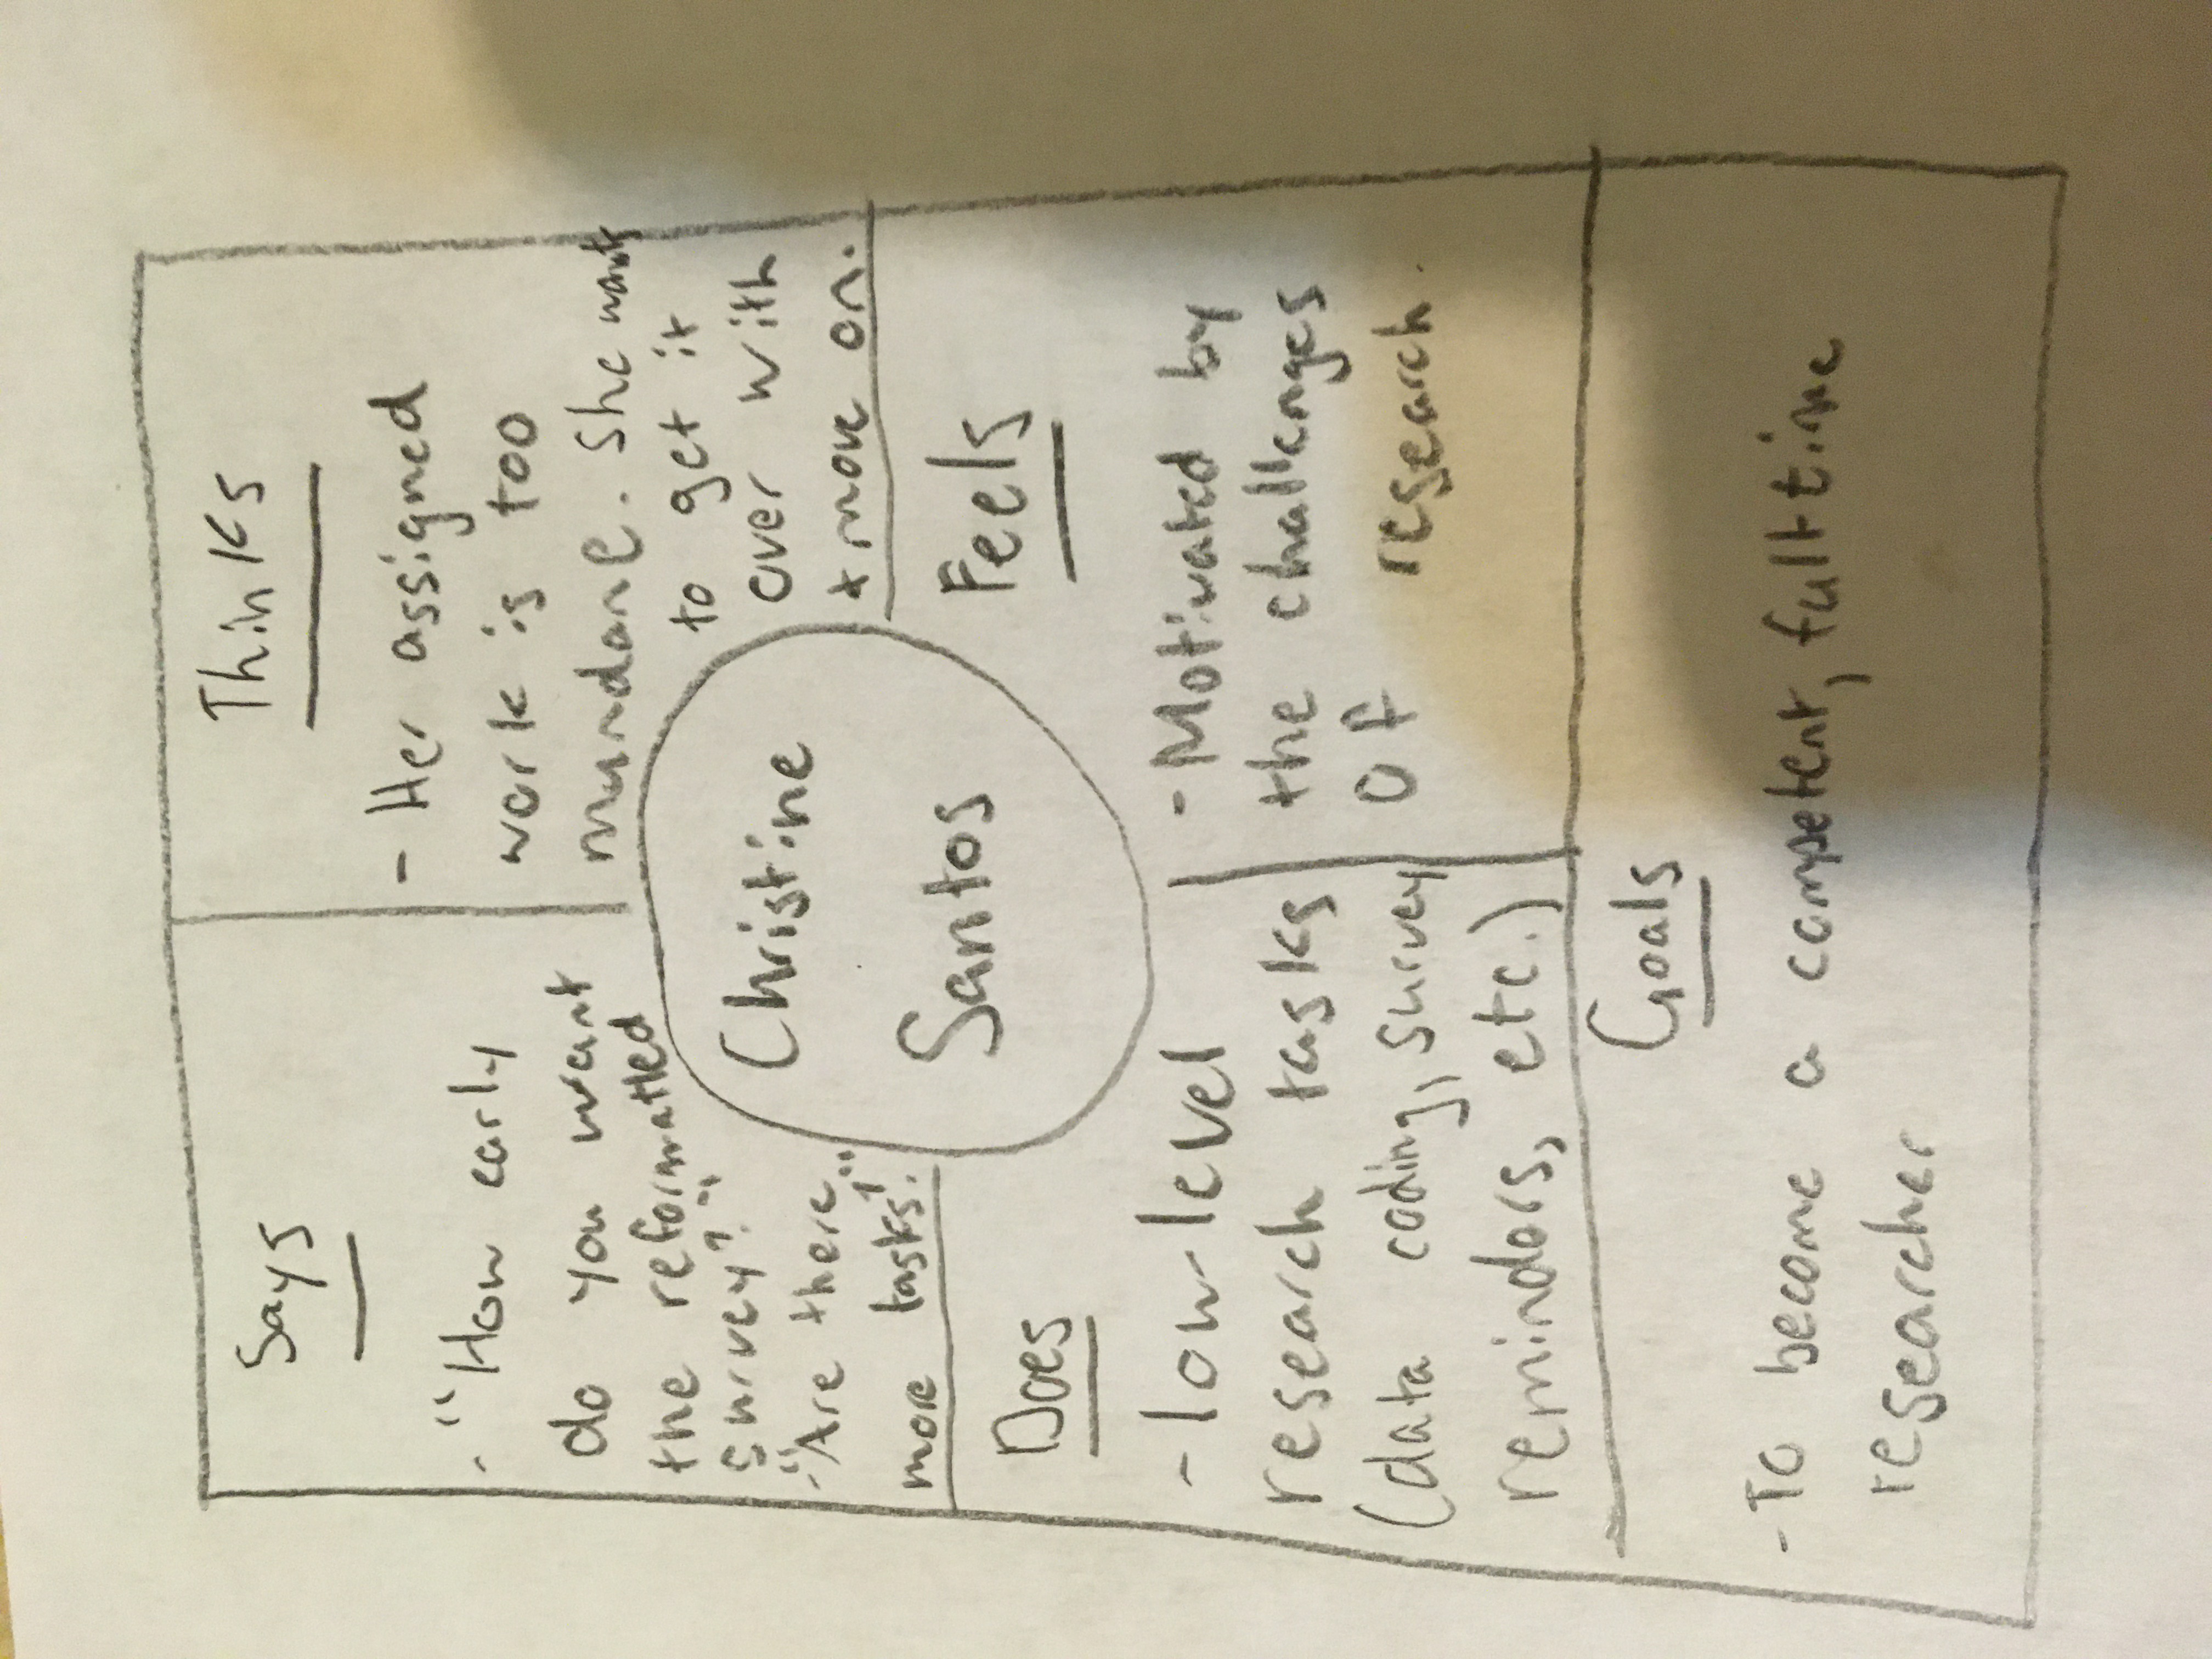 Says
- "How early
do you want
the reformatted
survey?"
- "Are there
more tasks?"
Thinks
- Her assigned
work is too
mundane. She wants
to get it
over with
+ move on.
Christine
Santos
Does
- low-level
research tasks
(data coding, survey
reminders, etc.)
Feels
- Motivated by
the challenges
of research.
Goals
- To become a competent, full-time
researcher